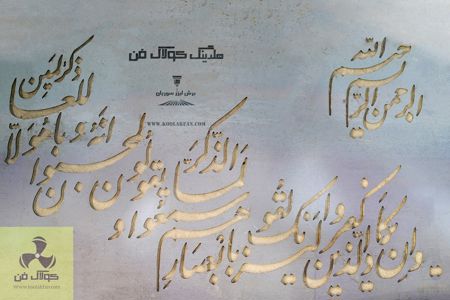 بسم الله الرحمن الرحیم
هلدینگ کولاک فن
WWW.KOOLAKFAN.COM
وان یکاد الذین کفروا لیزلقونک بابصارهم
لما سمعوا الذکر و یقولون انه لمجنون
و ما هو الا ذکر للعالمین
کولاک فن
WWW.KOOLAKFAN.COM